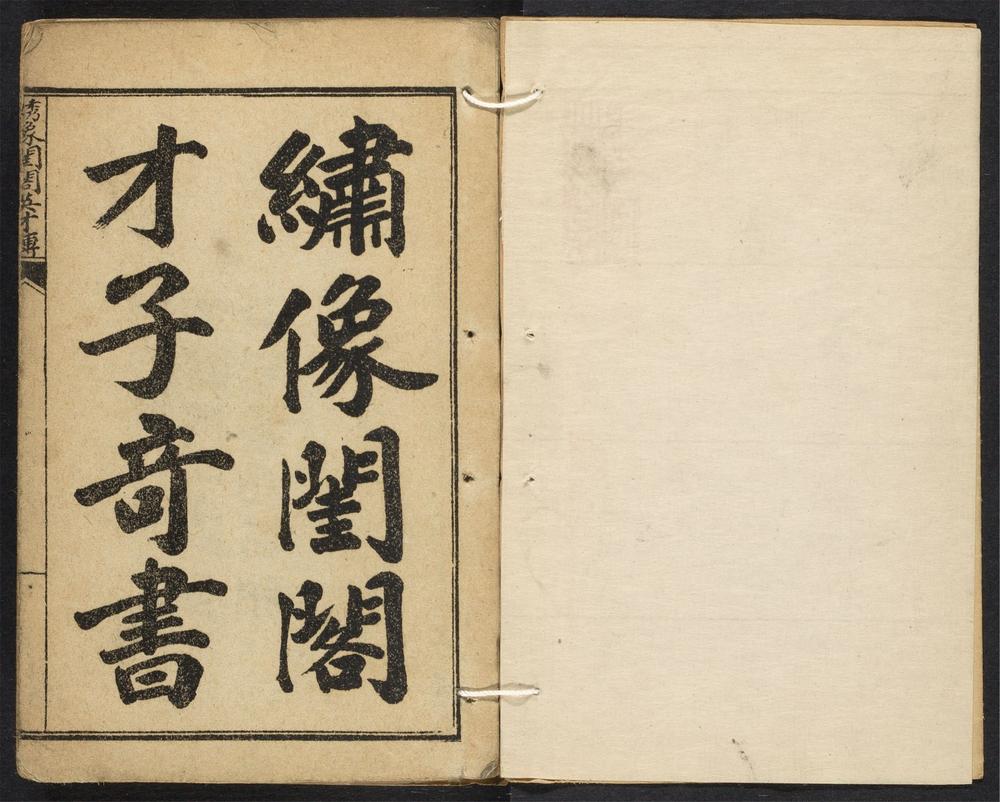 繡像閨閣
才子奇書
綉像閨閣英才傳